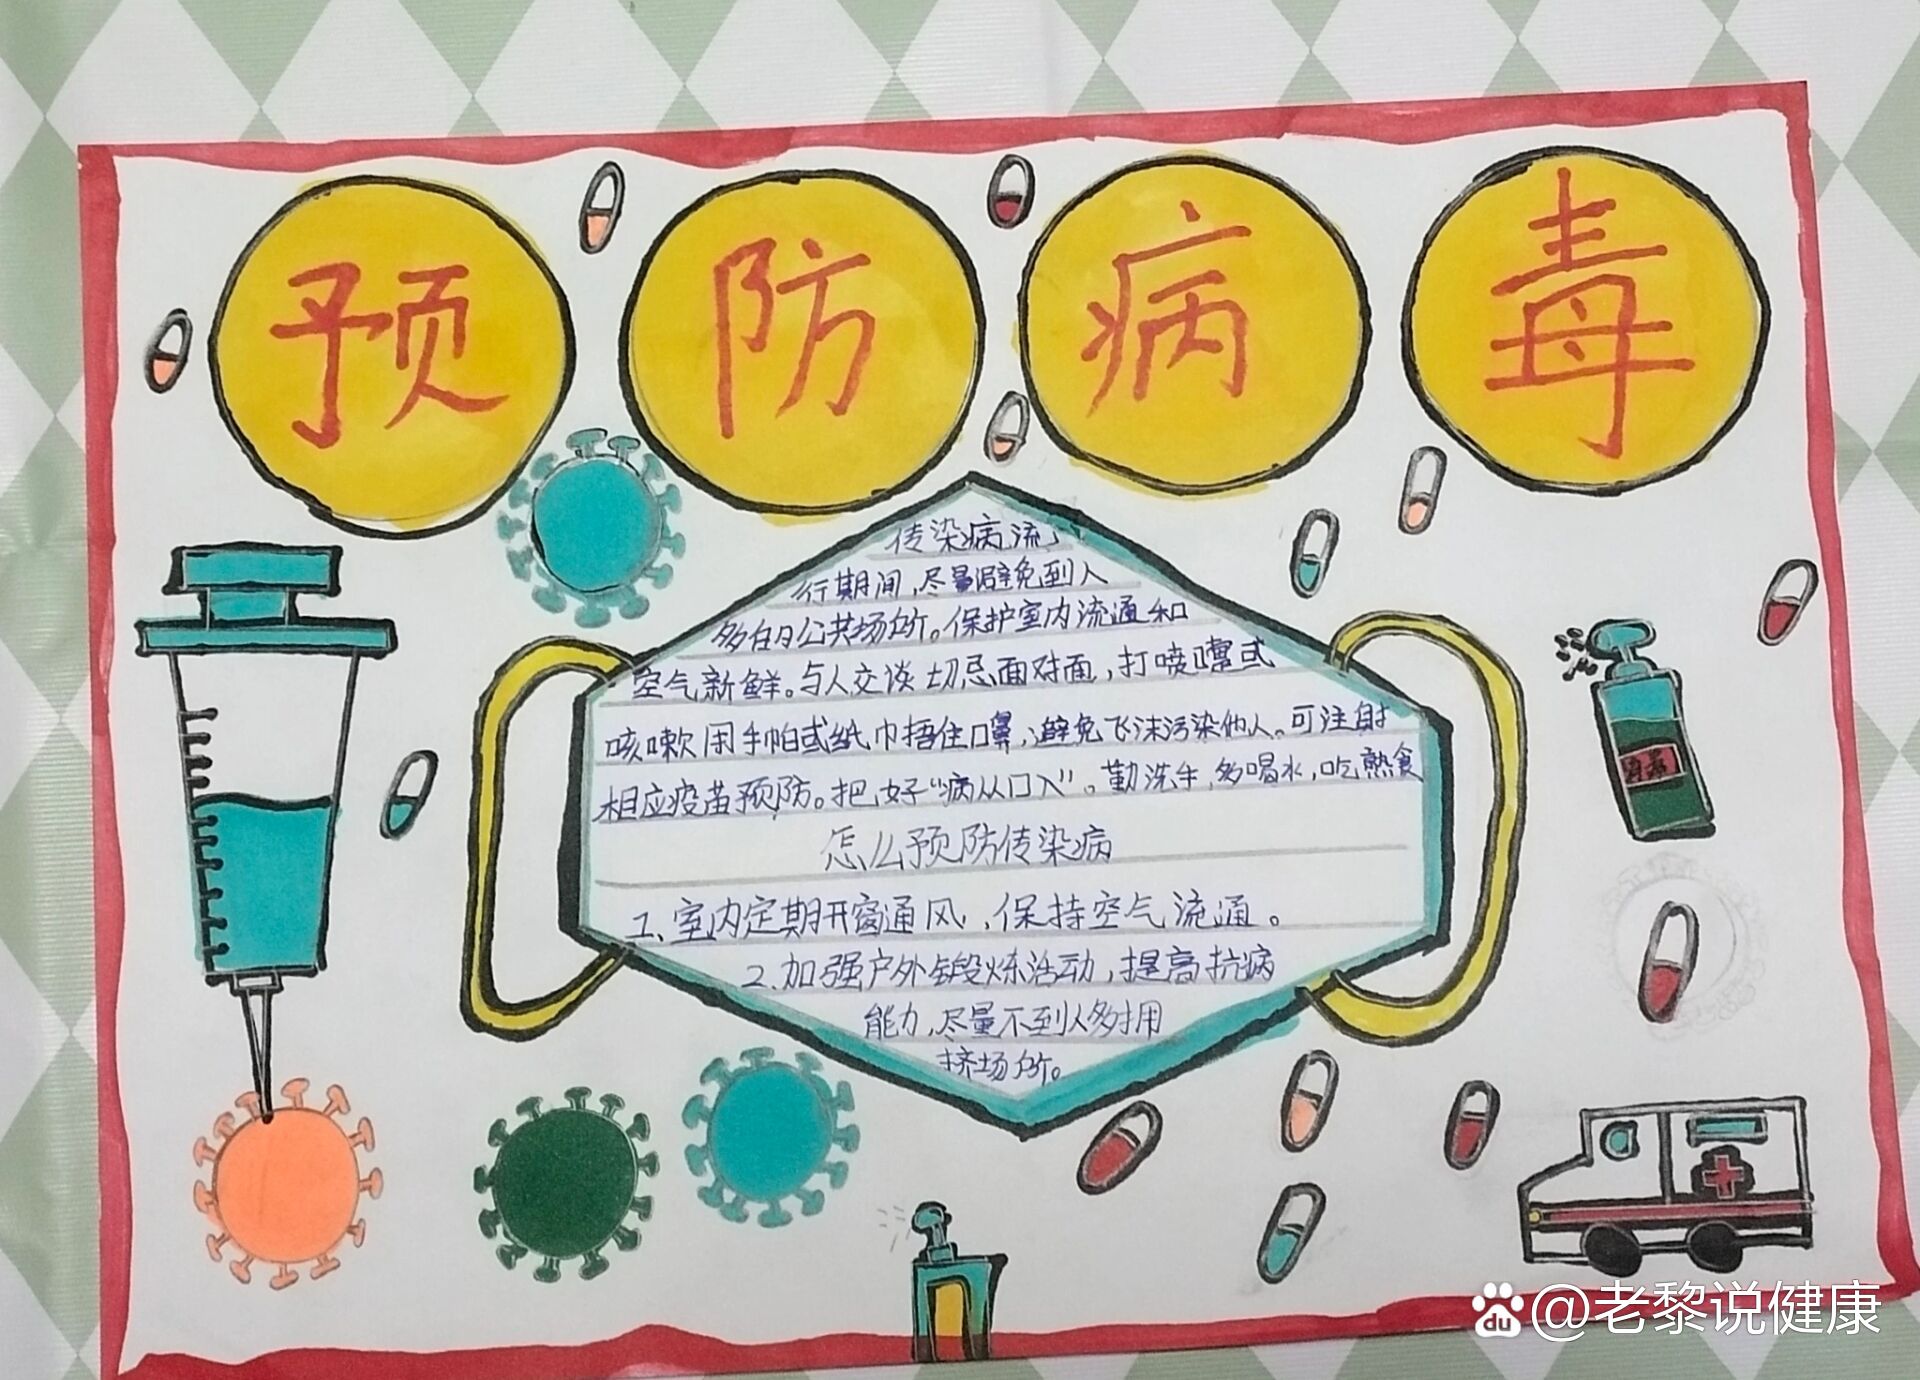 预防病毒
传染病流
行期间,尽量避免到人
多的公共场所。保护室内流通和
空气新鲜。与人交谈切忌面对面,打喷嚏或
咳嗽用手帕或纸巾捂住口鼻,避免飞沫污染他人。可注射
相应疫苗预防。把好“病从口入”。勤洗手,多喝水,吃熟食
怎么预防传染病
1、室内定期开窗通风,保持空气流通。
2、加强户外锻炼活动,提高抗病
能力,尽量不到人多拥
挤场所。
du @老黎说健康